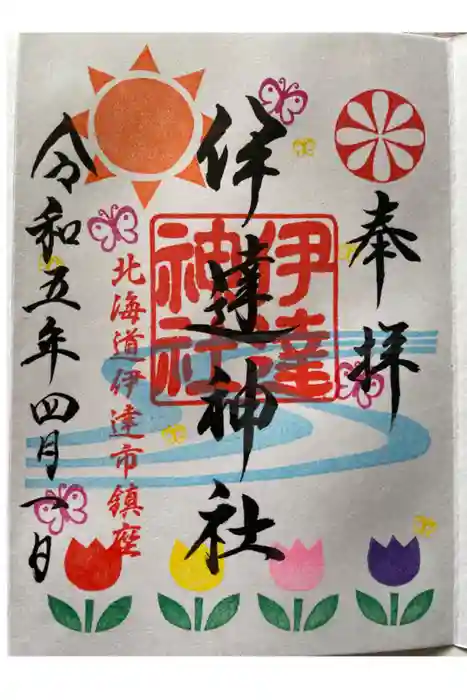 奉拝
伊達神社
伊達
神社
北海道伊達市鎮座
令和五年四月一日